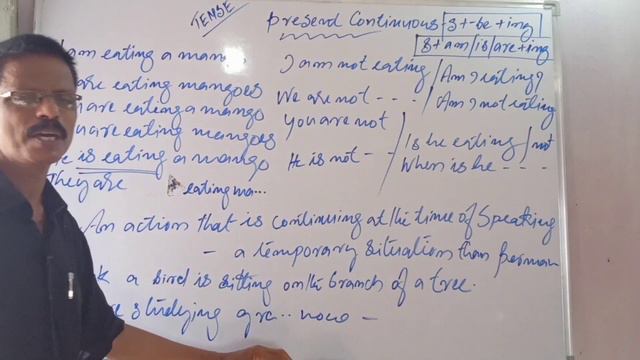 TENSE
Present Continuous S+be+ing
S+am/is/are+ing
am eating a mango. I am not eating / Am I eating?
are eating mangoes We are not - - - / Am I not eating
are eating a mango You are not
are eating mangoes Is he eating / not
He is eating a mango He is not - - When is he - - - -
They are eating ma...
An action that is continuing at the time of Speaking
- a temporary situation than perman
a bird is sitting on the branch of a tree.
studying gr.. now -